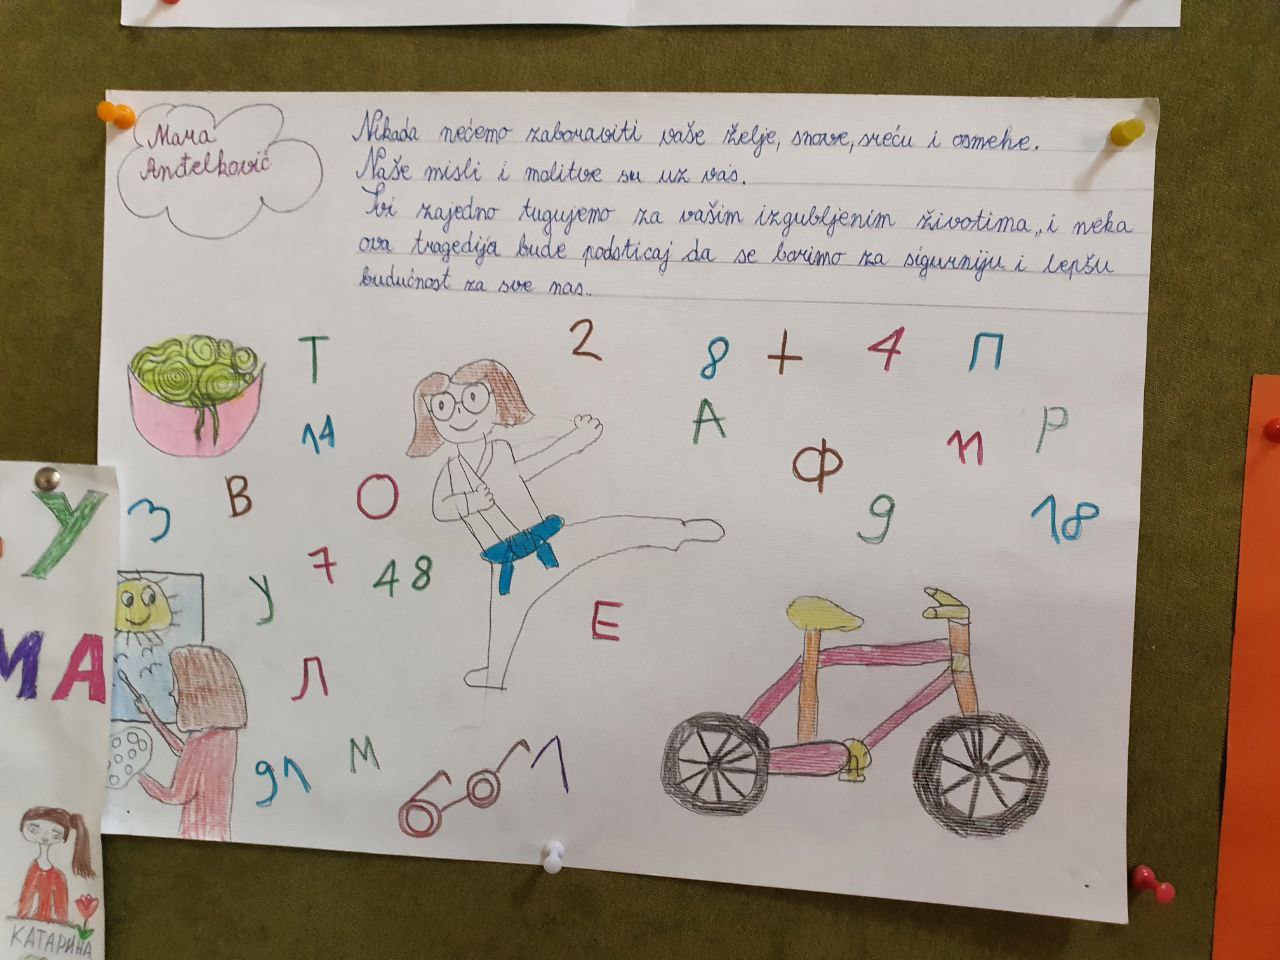 Mara
Anđelković
Nikada nećemo zaboraviti vaše želje, snove, sreću i osmehe.
Naše misli i molitve su uz vas.
Svi zajedno tugujemo za vašim izgubljenim životima,, i neka
ova tragedija bude podsticaj da se borimo za sigurniju i lepšu
budućnost za sve nas..
T 2 8 + 4 П
14 А Ф 11 Р
3 В О 9 18
У 7 48
Е
Л
91 М 1
У
МА
КАТАРИНА